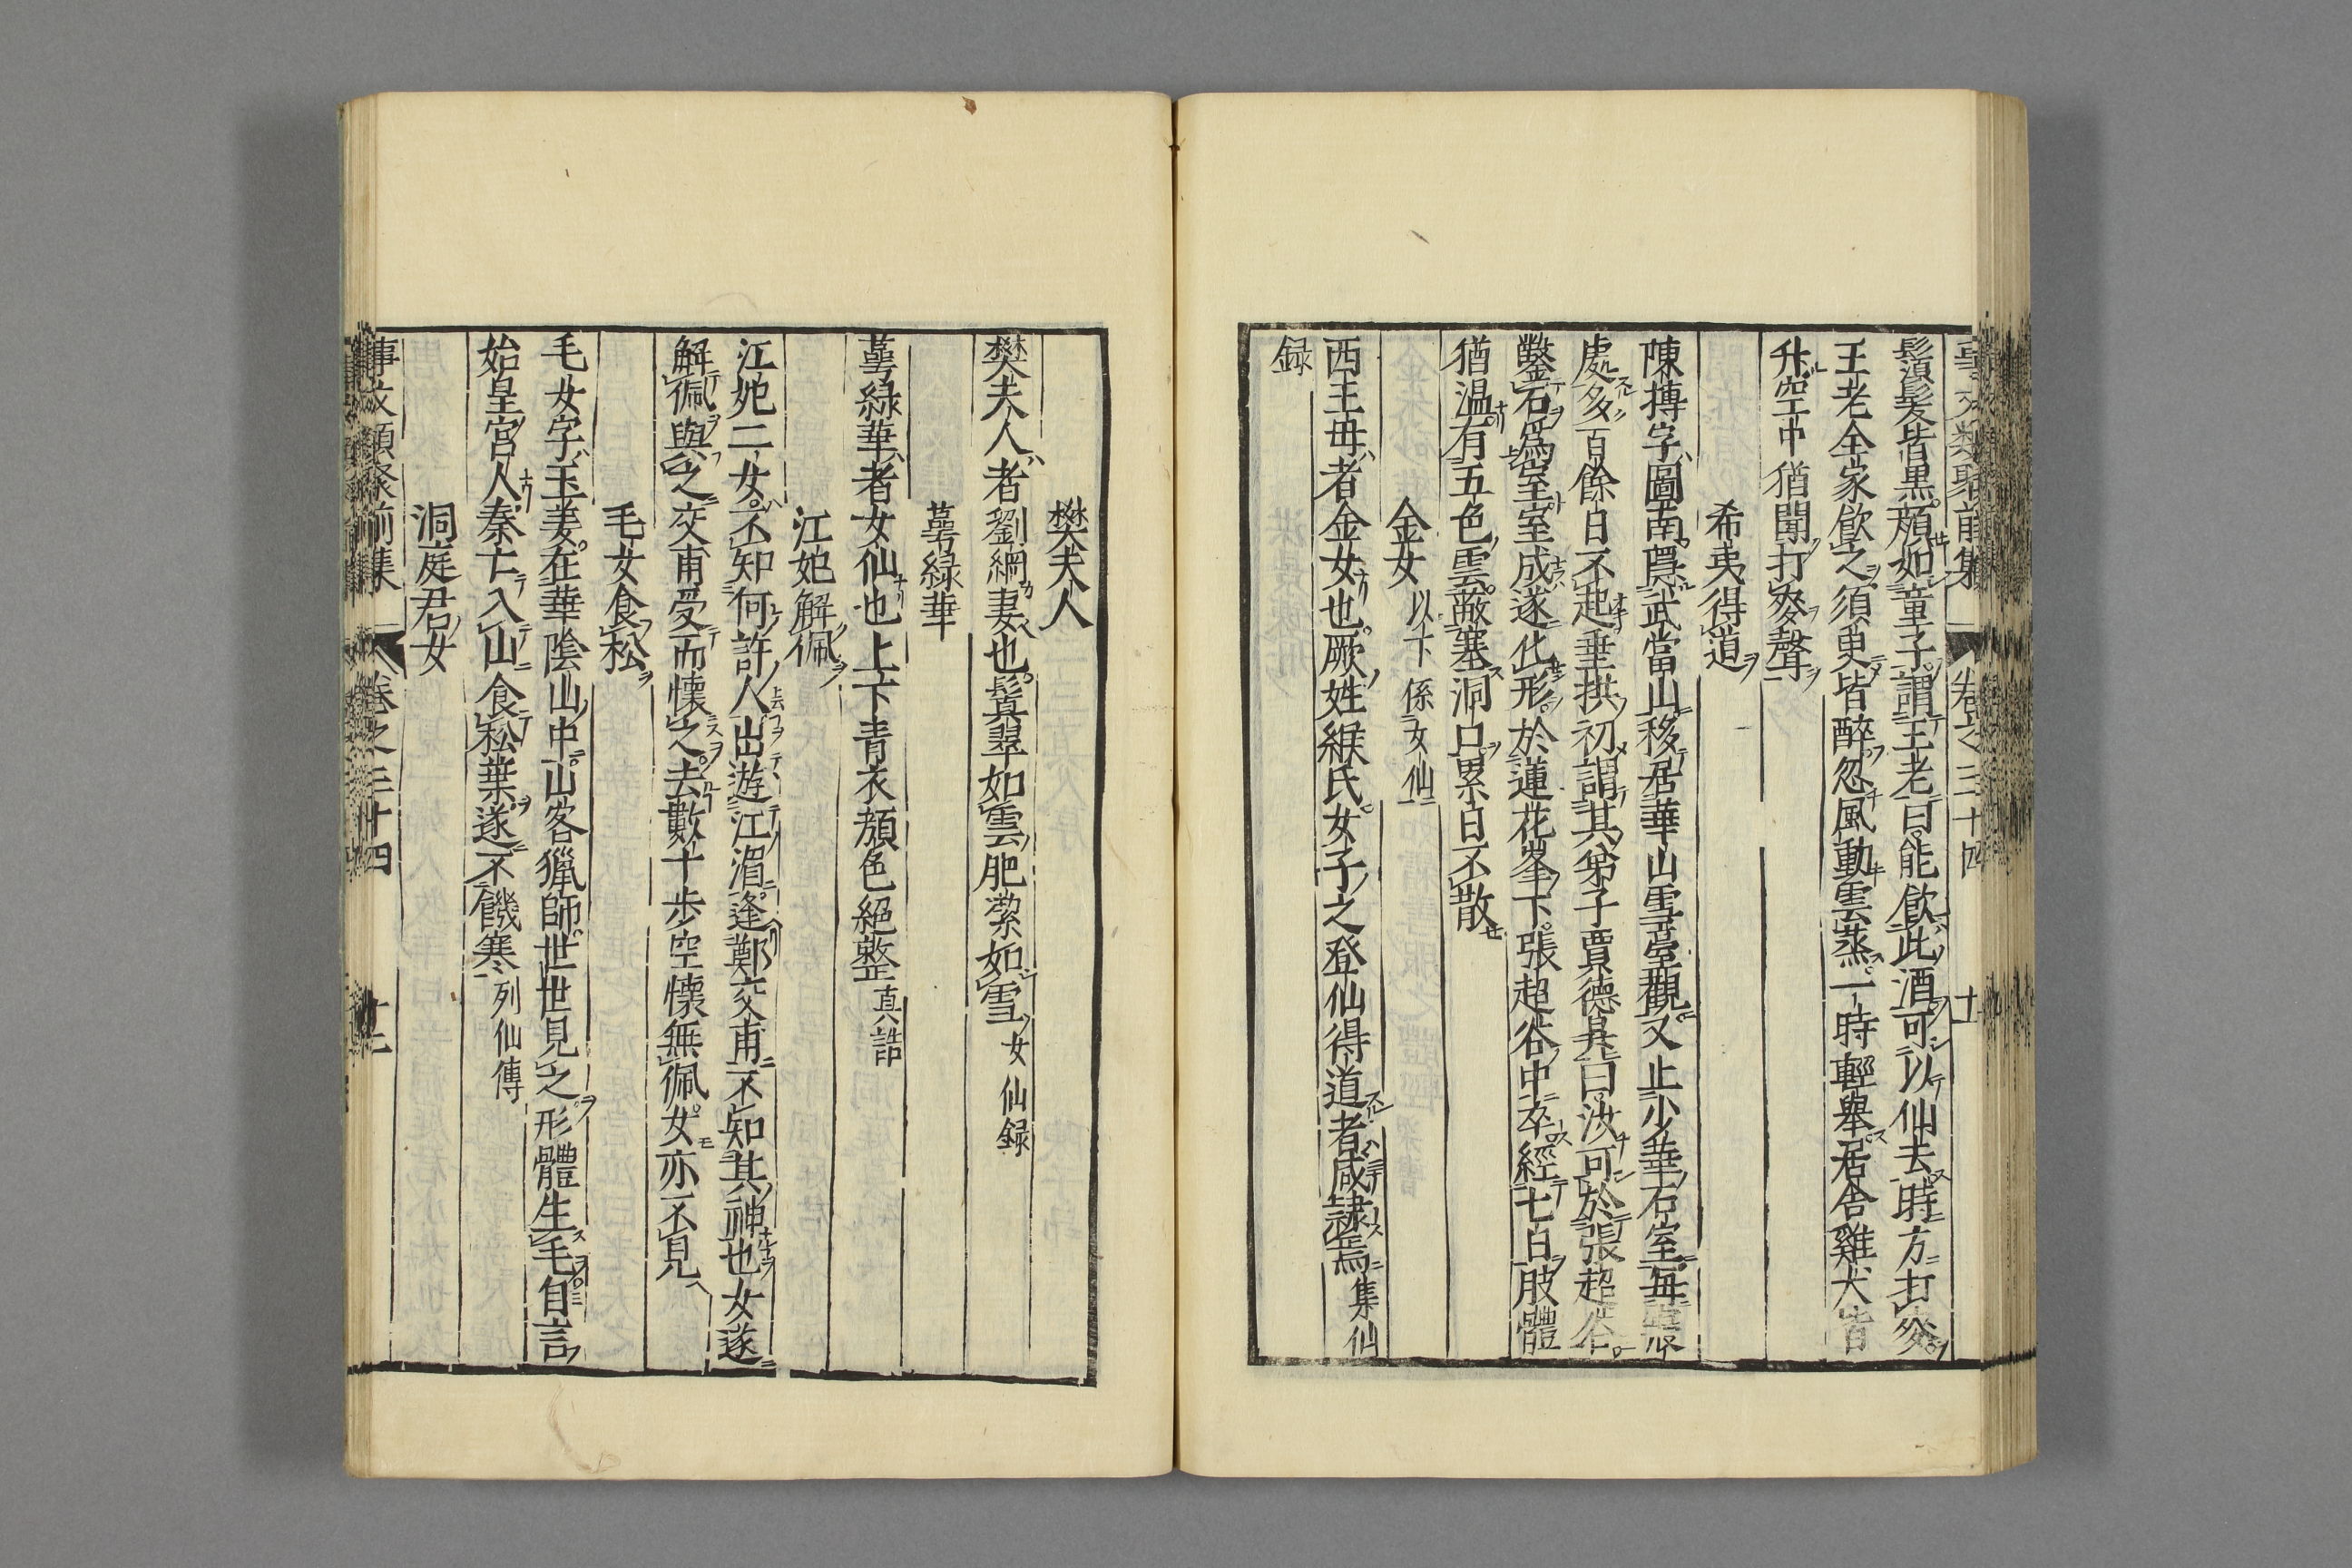 事文類聚前集 卷之三十四 十
鬚髮皆黒顔如童子謂王老曰能飲此酒可以仙去時方打麥
王老全家飲之須臾皆醉忽風動雲蒸一時輕舉居舍雞犬皆
升空中猶聞打麥聲
希夷得道
陳摶字圖南隱武當山移居華山雲臺觀又止少華石室毎寢
處多百餘日不起垂拱初謂其弟子賈德昇曰汝可於張超谷
鑿石爲室室成遂化形於蓮花峯下張超谷中卒經七日肢體
猶温有五色雲蔽塞洞口累日不散
金女 以下係女仙
西王母者金女也厥姓緱氏女子之登仙得道者咸隷焉 集仙
録
樊夫人
樊夫人者劉綱妻也鬒翠如雲肥潔如雪 女仙録
萼緑華
萼緑華者女仙也上下青衣顔色絕整 真誥
江妃解佩
江妃二女不知何許人出遊江湄逢鄭交甫不知其神也女遂
解佩與之交甫受而懷之去數十歩空懷無佩女亦不見
毛女食松
毛女字玉姜在華陰山中山客獵師世世見之形體生毛自言
始皇宮人秦亡入山食松葉遂不饑寒 列仙傳
洞庭君女
事文類聚前集 卷之三十四